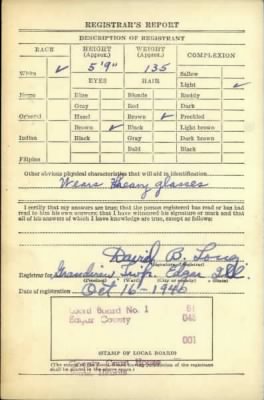 REGISTRAR'S REPORT
DESCRIPTION OF REGISTRANT
RACE
HEIGHT (Approx.)
WEIGHT (Approx.)
COMPLEXION
White ✓
5'9"
135
Sallow
EYES
HAIR
Light ✓
Negro
Blue
Blonde
Ruddy
Gray
Red
Dark
Oriental
Hazel
Brown ✓
Freckled
Brown ✓
Black
Light brown
Indian
Black
Gray
Dark brown
Bald
Black
Filipino
Other obvious physical characteristics that will aid in identification
Wears heavy glasses
I certify that my answers are true; that the person registered has read or has had
read to him his own answers; that I have witnessed his signature or mark and that
all of his answers of which I have knowledge are true, except as follows:
David B. Long
(Signature of registrar)
Registrar for Grandview Twp. Edgar Ill.
(Precinct) (Ward) (City or county) (State)
Date of registration Oct 16-1940
Local Board No. 1 81
Edgar County 045
001
Court House
(STAMP OF LOCAL BOARD)
(The stamp of the Local Board having jurisdiction of the registrant
shall be placed in the above space.)